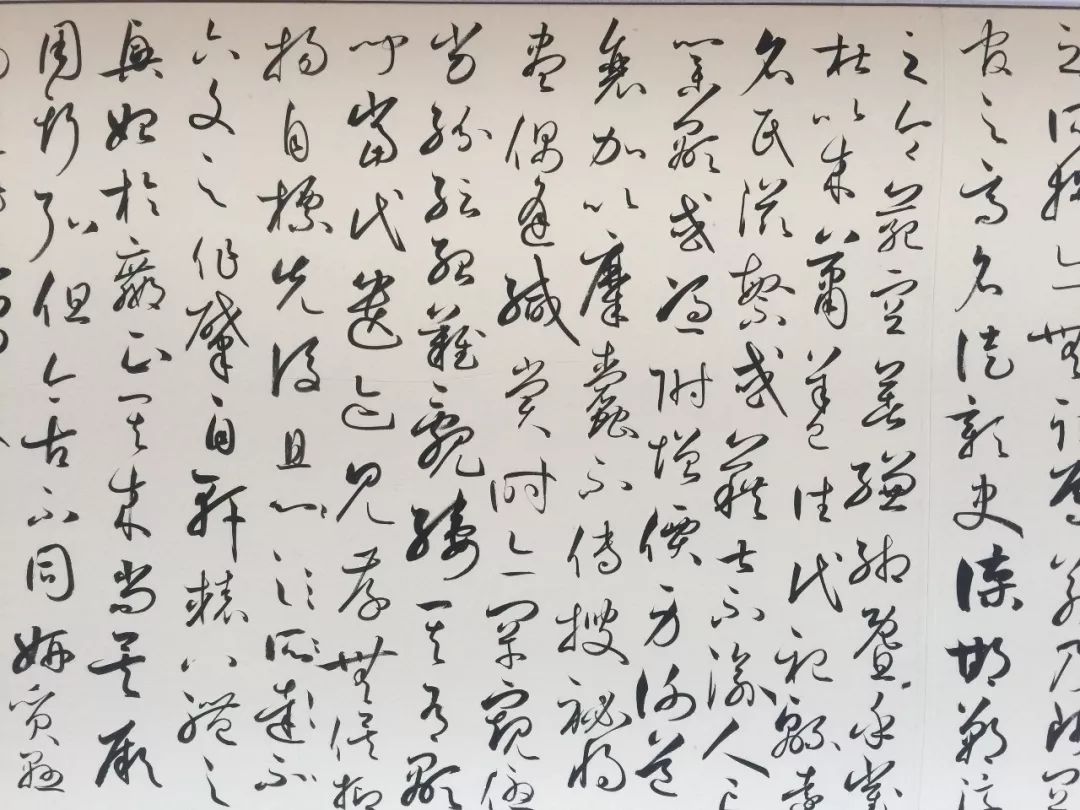 之所撰亦無取焉若乃師宜
官之高名徒彰史牒邯鄲淳
之令範空著縑緗暨乎崔
杜以來蕭羊已往代祀綿遠
名氏滋繁或藉甚不渝人亡
業顯或憑附增價身謝道
衰加以糜蠹不傳搜祕將
盡偶逢緘賞時亦罕窺優
劣紛紜殆難覼縷其有顯
聞當代遺跡見存無俟抑
揚自標先後且
六文之作肇自軒轅八體之
興始於嬴正其來尚矣厥
用斯弘但今古不同妍質懸